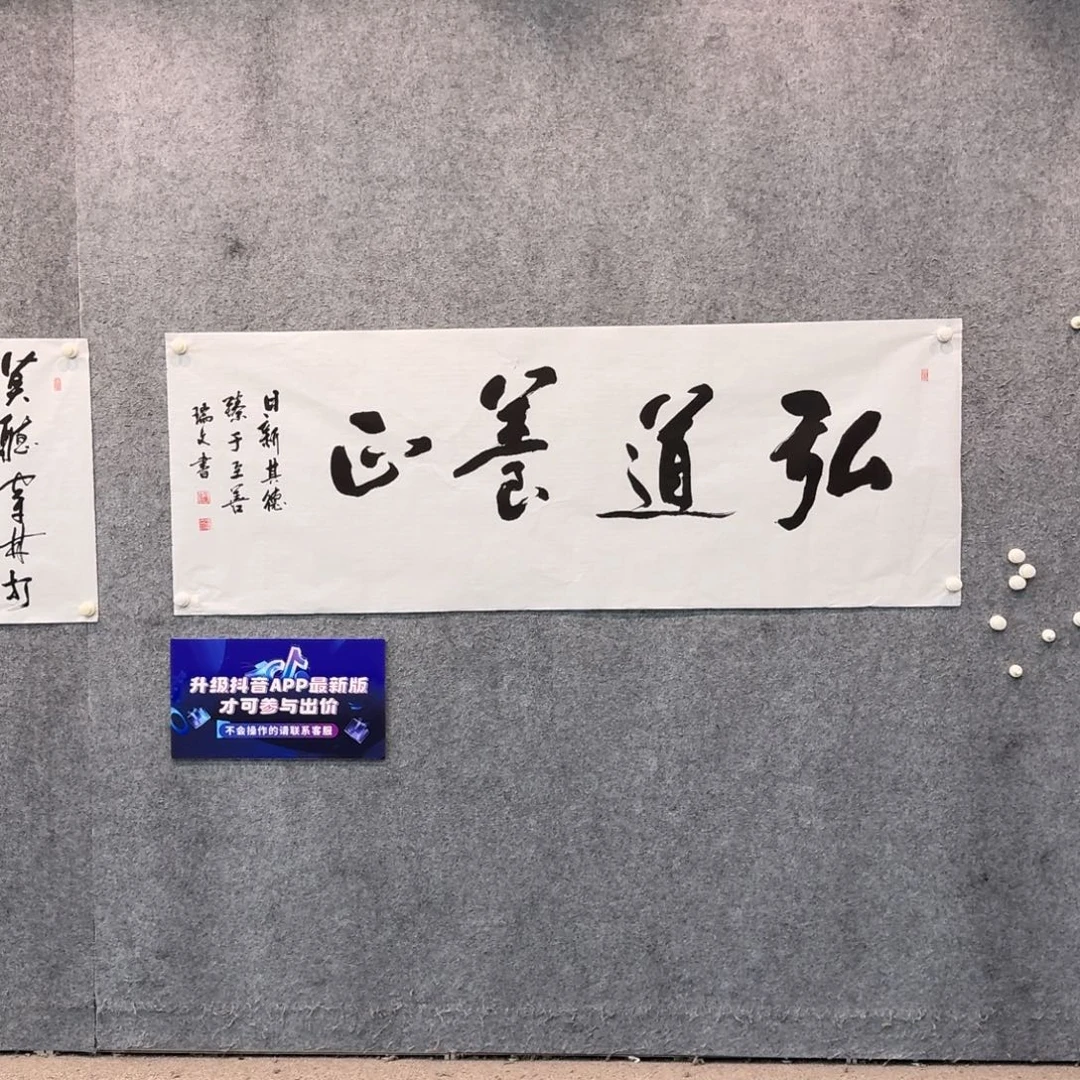 弘道養正
日新其德
臻于至善
瑞文書
莫聽穿林打
升级抖音APP最新版
才可参与出价
不会操作的请联系客服